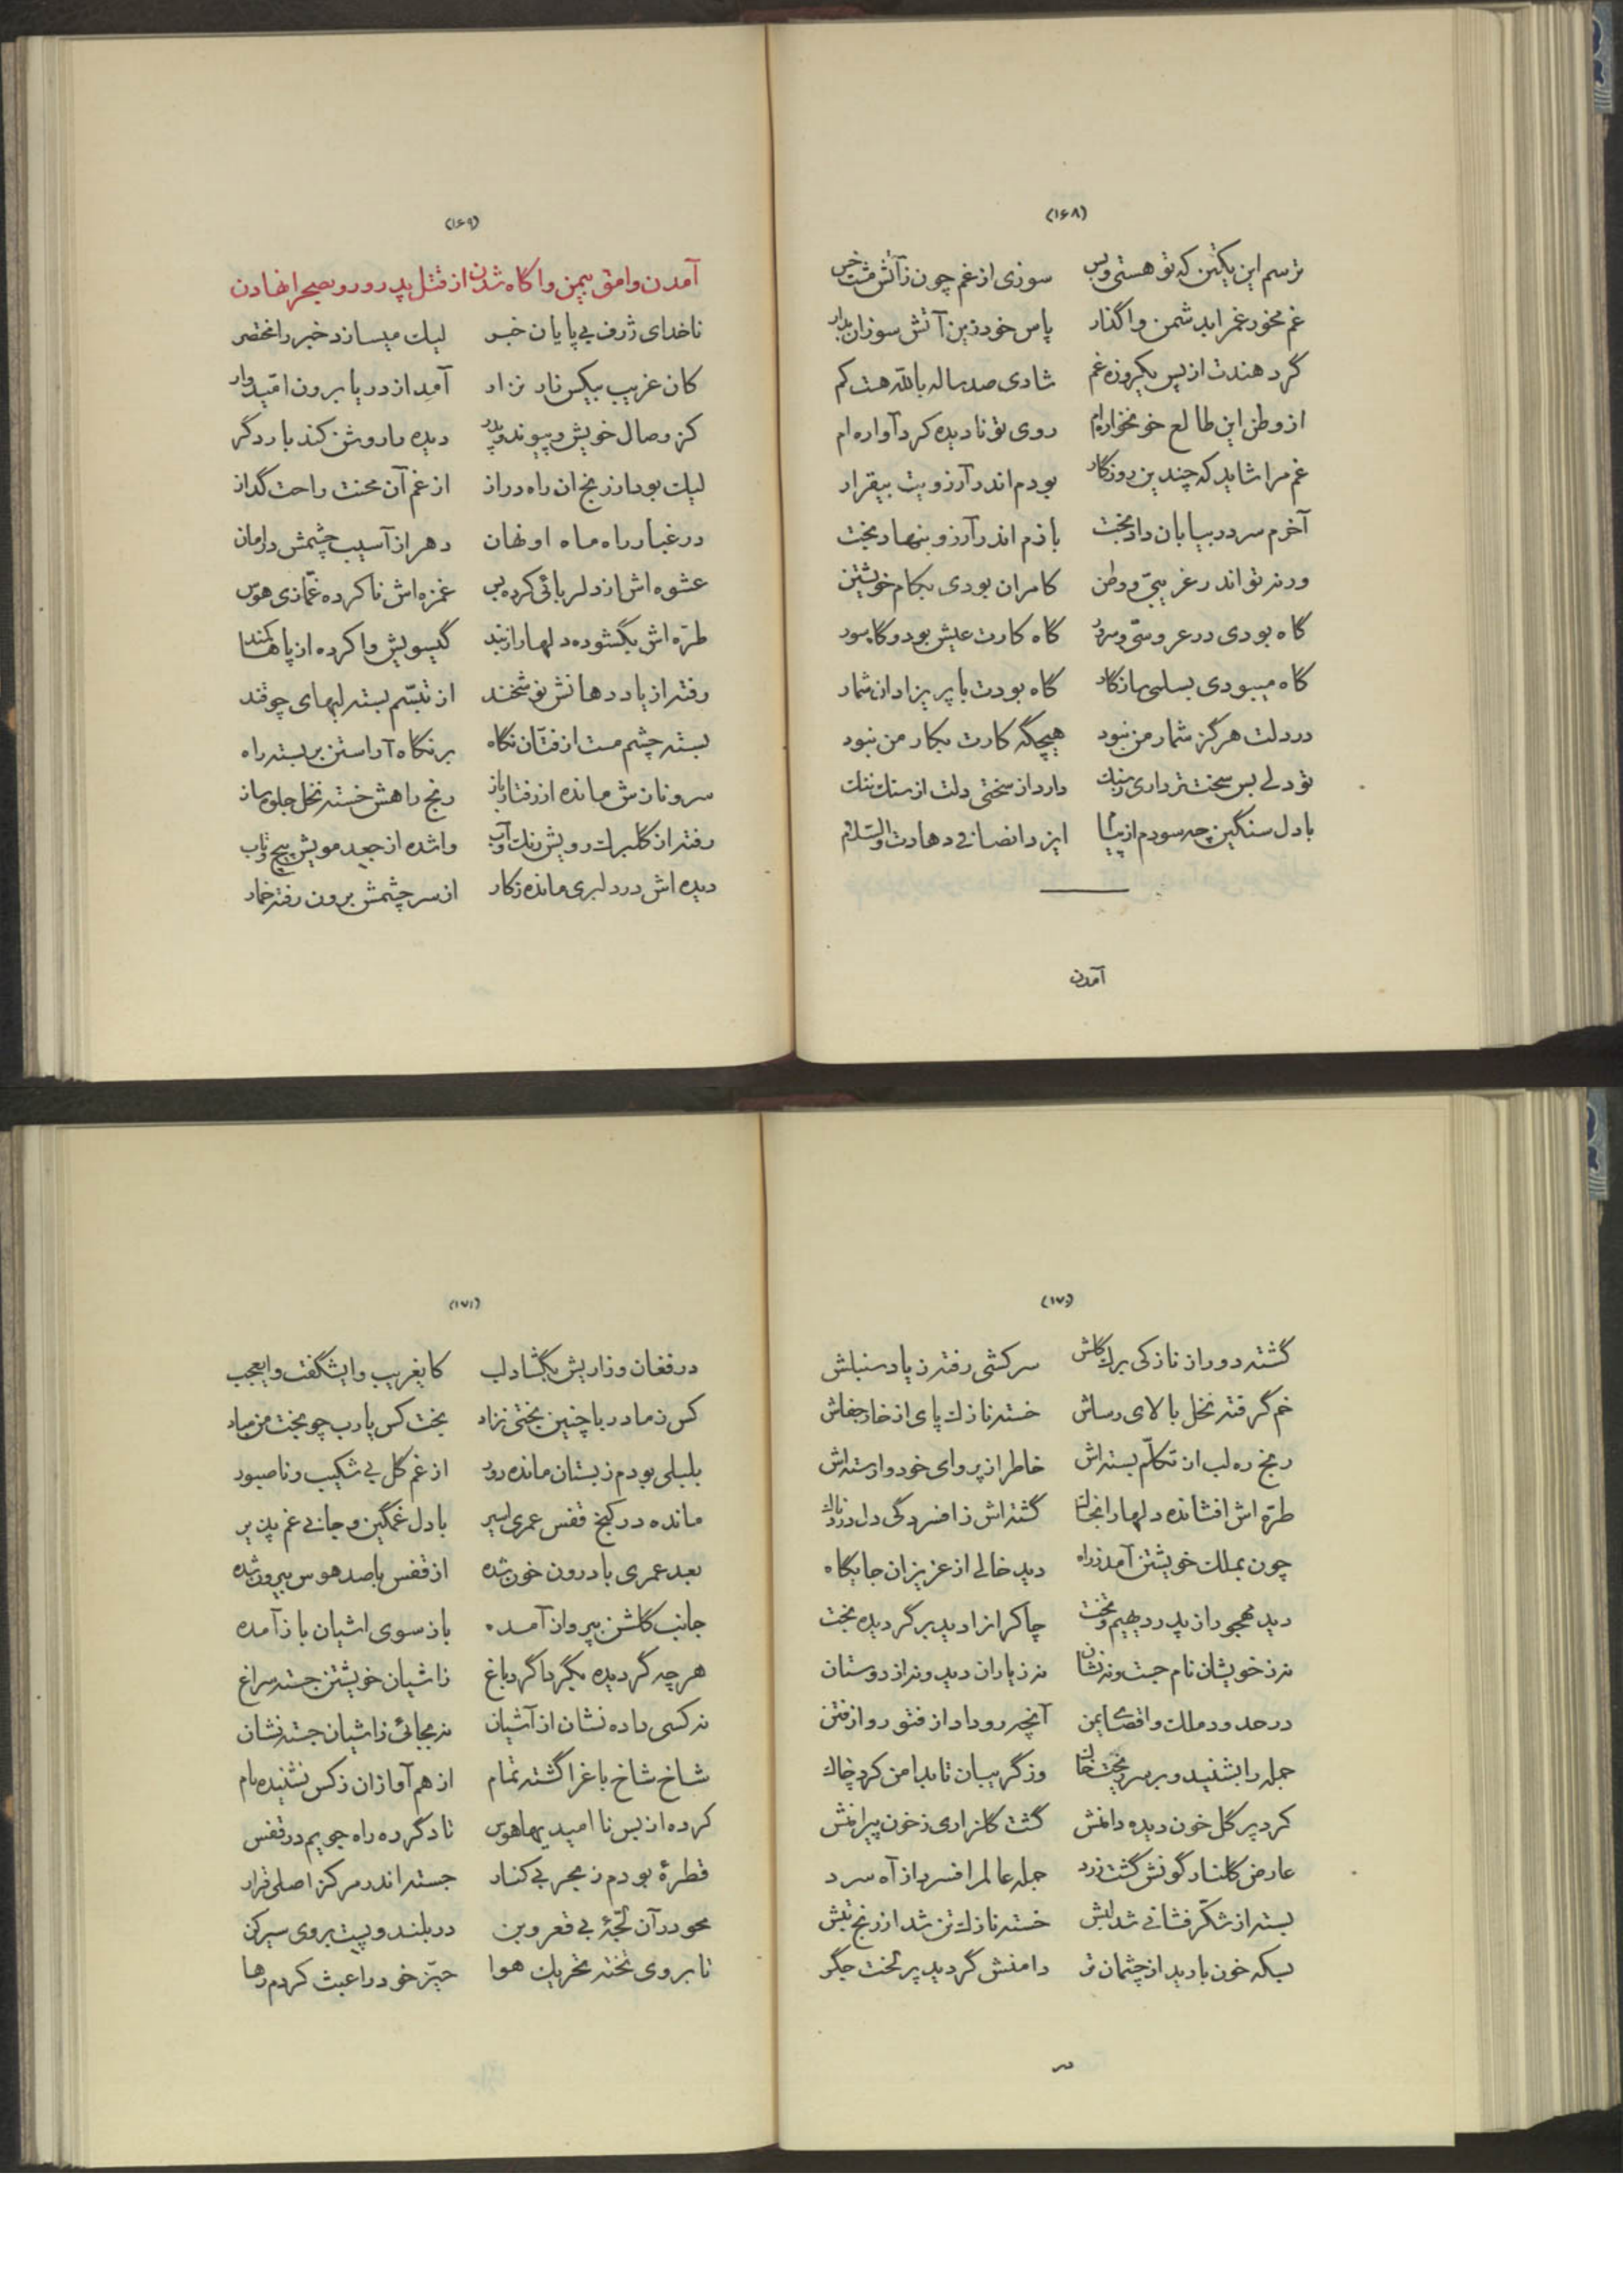 (۱۶۸)
ترسم این یکتن که تو هستی و بس سوزی از غم چون ز آتش مشت خس
غم مخور غم را بدشمن واگذار پاس خود زین آتش سوزان بدار
گر دهندت از پس یکروزه غم شادی صد ساله بالله هست کم
از وطن این طالع خونخواره‌ام روی تو نادیده کرد آواره‌ام
غم مرا شاید که چندین روزگار بودم اندر آرزویت بیقرار
آخرم سر در بیابان داد بخت بازم اندر آرزو بنهاد بخت
ورنه تو اندر غریبی و وطن کامران بودی بکام خویشتن
گاه بودی در عروسی و سرور گاه کارت عیش بود و گاه سور
گاه میبودی بسلمی سازگار گاه بودت با پریزادان شمار
در دلت هرگز شمار من نبود هیچگه کارت بکار من نبود
تو دلی بس سخت‌تر داری ز سنک دارد از سختی دلت از سنک ننک
با دل سنگین چه سودم از پیام ایزد انصافی دهادت والسلام
آمدن
(۱۶۹)
آمدن وامق بیمن و آگاه شدن از قتل پدر و رو بصحرا نهادن
ناخدای ژرف بی پایان خبر لیک میسازد خبر را مختصر
کان غریب بیکس نار نزار آمد از دریا برون امیدوار
کز وصال خویش و پیوند و پدر دیده را روشن کند بار دگر
لیک بود از رنج ان راه دراز از غم آن محنت راحت گداز
در غبار راه ماه او نهان دهر از آسیب چشمش در امان
عشوه‌اش از دلربائی کرده بس غمزه‌اش ناکرده غمازی هوس
طره‌اش بگشوده دلها را ز بند گیسویش وا کرده از پاها کمند
رفته از یاد دهانش نوشخند از تبسم بسته لبهای چو قند
بسته چشم مست از فتان نگاه بر نگاه آراستن بر بسته راه
سرو نازش مانده از رفتار باز رنج راهش خسته نخل جلوه ساز
رفته از گلبرک رویش رنک و آب وا شده از جعد مویش پیچ و تاب
دیده‌اش در دلبری مانده ز کار از سر چشمش برون رفته خمار
(۱۷۰)
گشته دور از نازکی برک گلش سرکشی رفته ز یاد سنبلش
خم گرفته نخل بالای رساش خسته نازک پای از خار جفاش
رنج ره لب از تکلم بسته‌اش خاطر از پروای خود وارسته‌اش
طره‌اش افشانده دلها را بخاک گشته‌اش ز افسردگی دل دردناک
چون بملک خویشتن آمد ز راه دید خالی از عزیزان جایگاه
دید مهجور از پدر دیهیم و تخت چاکرانرا دید برگردیده بخت
نه ز خویشان نام جست و نه نشان نه ز یاران دید و نه از دوستان
در حدود ملک و اقصای یمن آنچه رو داد از فتور و از فتن
جمله را بشنید و بر سر ریخت خاک وز گریبان تا بدامن کرد چاک
کرد پر گل خون دیده دامنش گشت گلزاری ز خون پیراهنش
عارض گلنار گونش گشت زرد جمله عالم را فسرد از آه سرد
بسته از شکر فشانی شد لبش خسته نازک تن شد از رنج تبش
بسکه خون بارید از چشمان تر دامنش گردید پر لخت جگر
در
(۱۷۱)
در فغان و زاریش بگشاد لب کایغریب و ایشگفت و ایعجب
کس ز مادر با چنین بختی نزاد بخت کس یارب چو بخت من مباد
بلبلی بودم ز بستان مانده دور از غم گل بی شکیب و ناصبور
مانده در کنج قفس عمری اسیر با دل غمگین و جانی غم پذیر
بعد عمری با درون خون شده از قفس با صد هوس بیرون شده
جانب گلشن بپرواز آمده باز سوی اشیان باز آمده
هر چه گردیده بگرداگرد باغ ز اشیان خویشتن جسته سراغ
نه کسی داده نشان از آشیان نه بجائی ز اشیان جسته نشان
شاخ شاخ باغ را گشته تمام از هم آوازان ز کس نشنیده نام
کرده از بس نا امیدیها هوس تا دگر ره راه جویم در قفس
قطرهٔ بودم ز بحر بی کنار جسته اندر مرکز اصلی قرار
محو در آن لجهٔ بی قعر و بن در بلند و پست بروی سیر کن
تا بروی تخته تحریک هوا حیز خود را عبث کردم رها